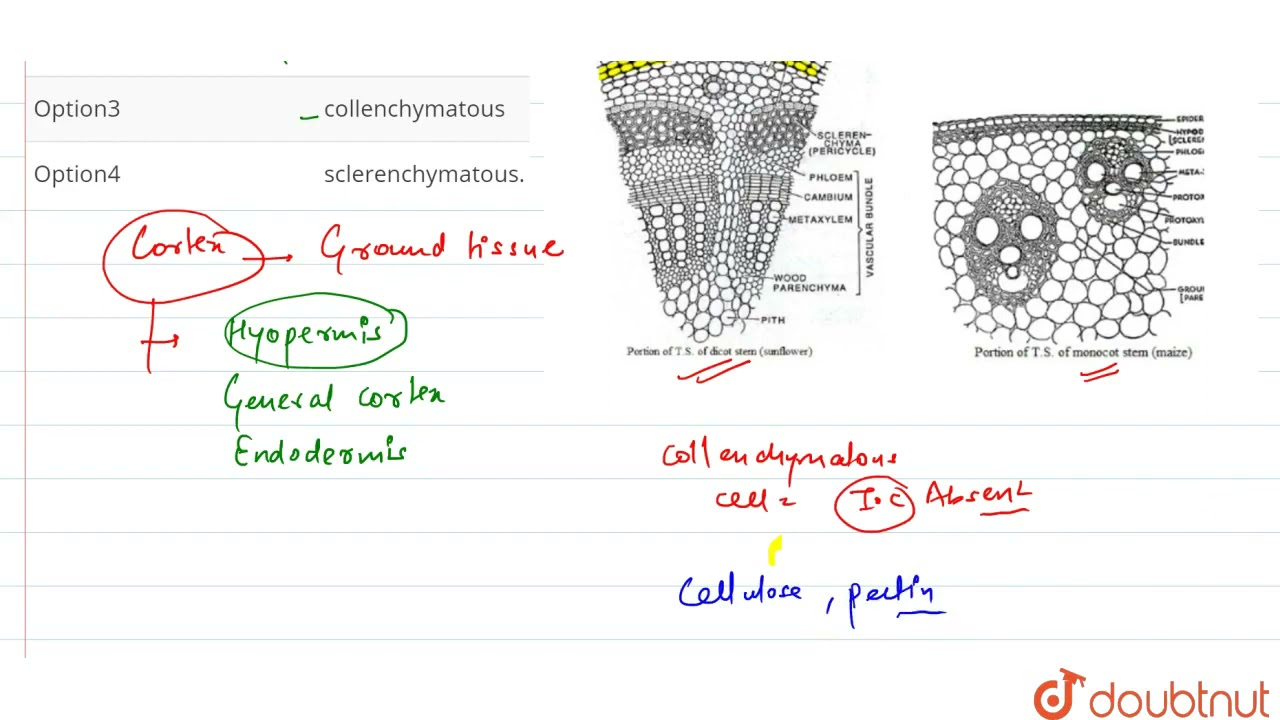 Option3 collenchymatous
Option4 sclerenchymatous.
Cortex → Ground tissue
Hyopermis
General cortex
Endodermis
SCLEREN-
CHYMA
(PERICYCLE)
PHLOEM
CAMBIUM
METAXYLEM
VASCULAR BUNDLE
WOOD
PARENCHYMA
PITH
Portion of T.S. of dicot stem (sunflower)
EPIDER
HYPOD
[SCLERE
PHLOE
META-
PROTOX
PROTOXYL
BUNDLE
GROU
[PARE
Portion of T.S. of monocot stem (maize)
collenchymatous
cell = I.C Absent
Cellulose, pectin
doubtnut